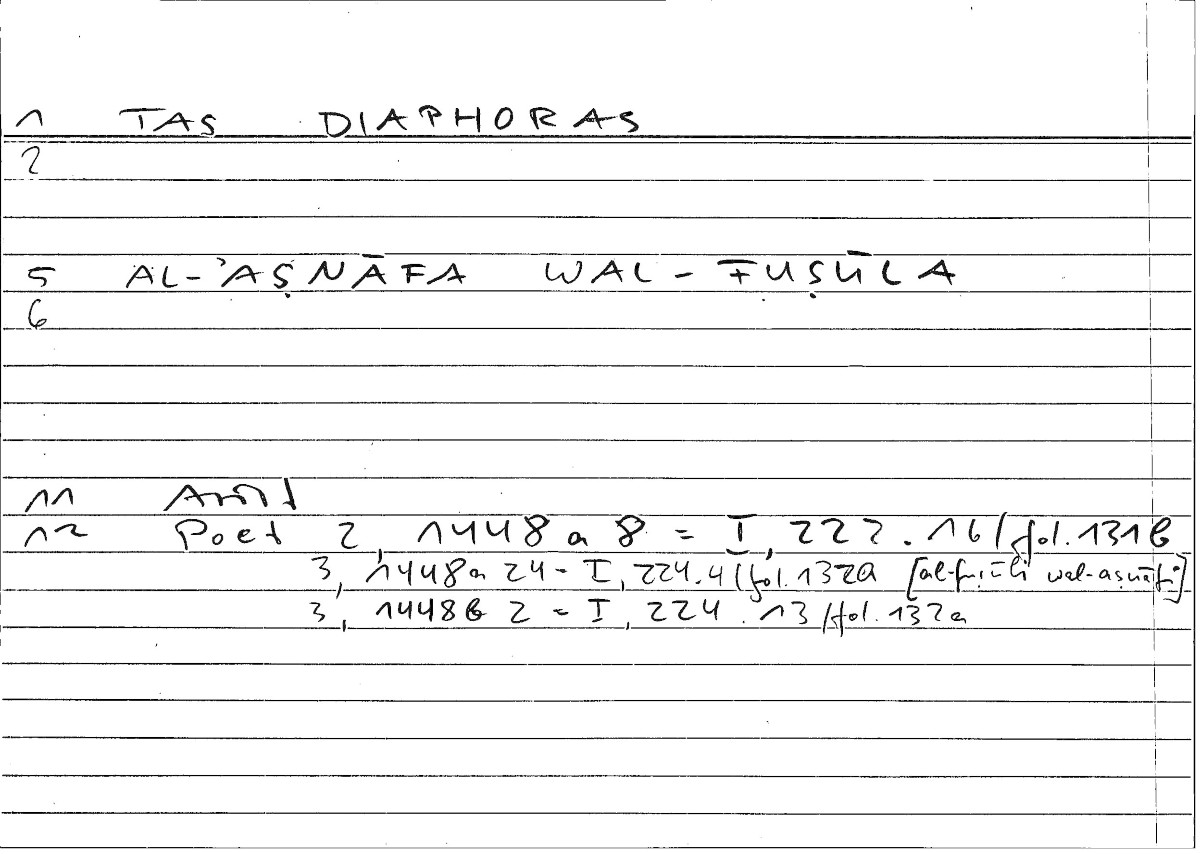 1 TAS DIAPHORAS
2
5 AL-ʾAṢNĀFA WAL-FUṢŪLA
6
11 Arist
12 Poet 2, 1448a8 = I, 222.16/fol.131b
3, 1448a24 = I, 224.4/fol.132a [al-fuṣūli wal-aṣnāfi]
3, 1448b2 = I, 224.13/fol.132a